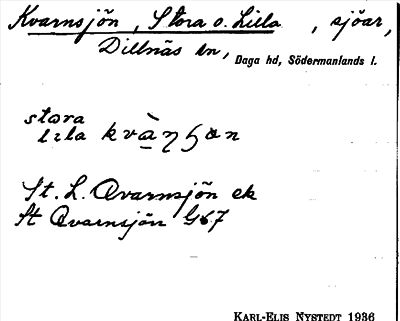 Kvarnsjön, Stora o. Lilla, sjöar,
Dillnäs sn, Daga hd, Södermanlands l.
stora
lilla
St. L. Qvarnsjön ek
St Qvarnsjön G67
KARL-ELIS NYSTEDT 1936